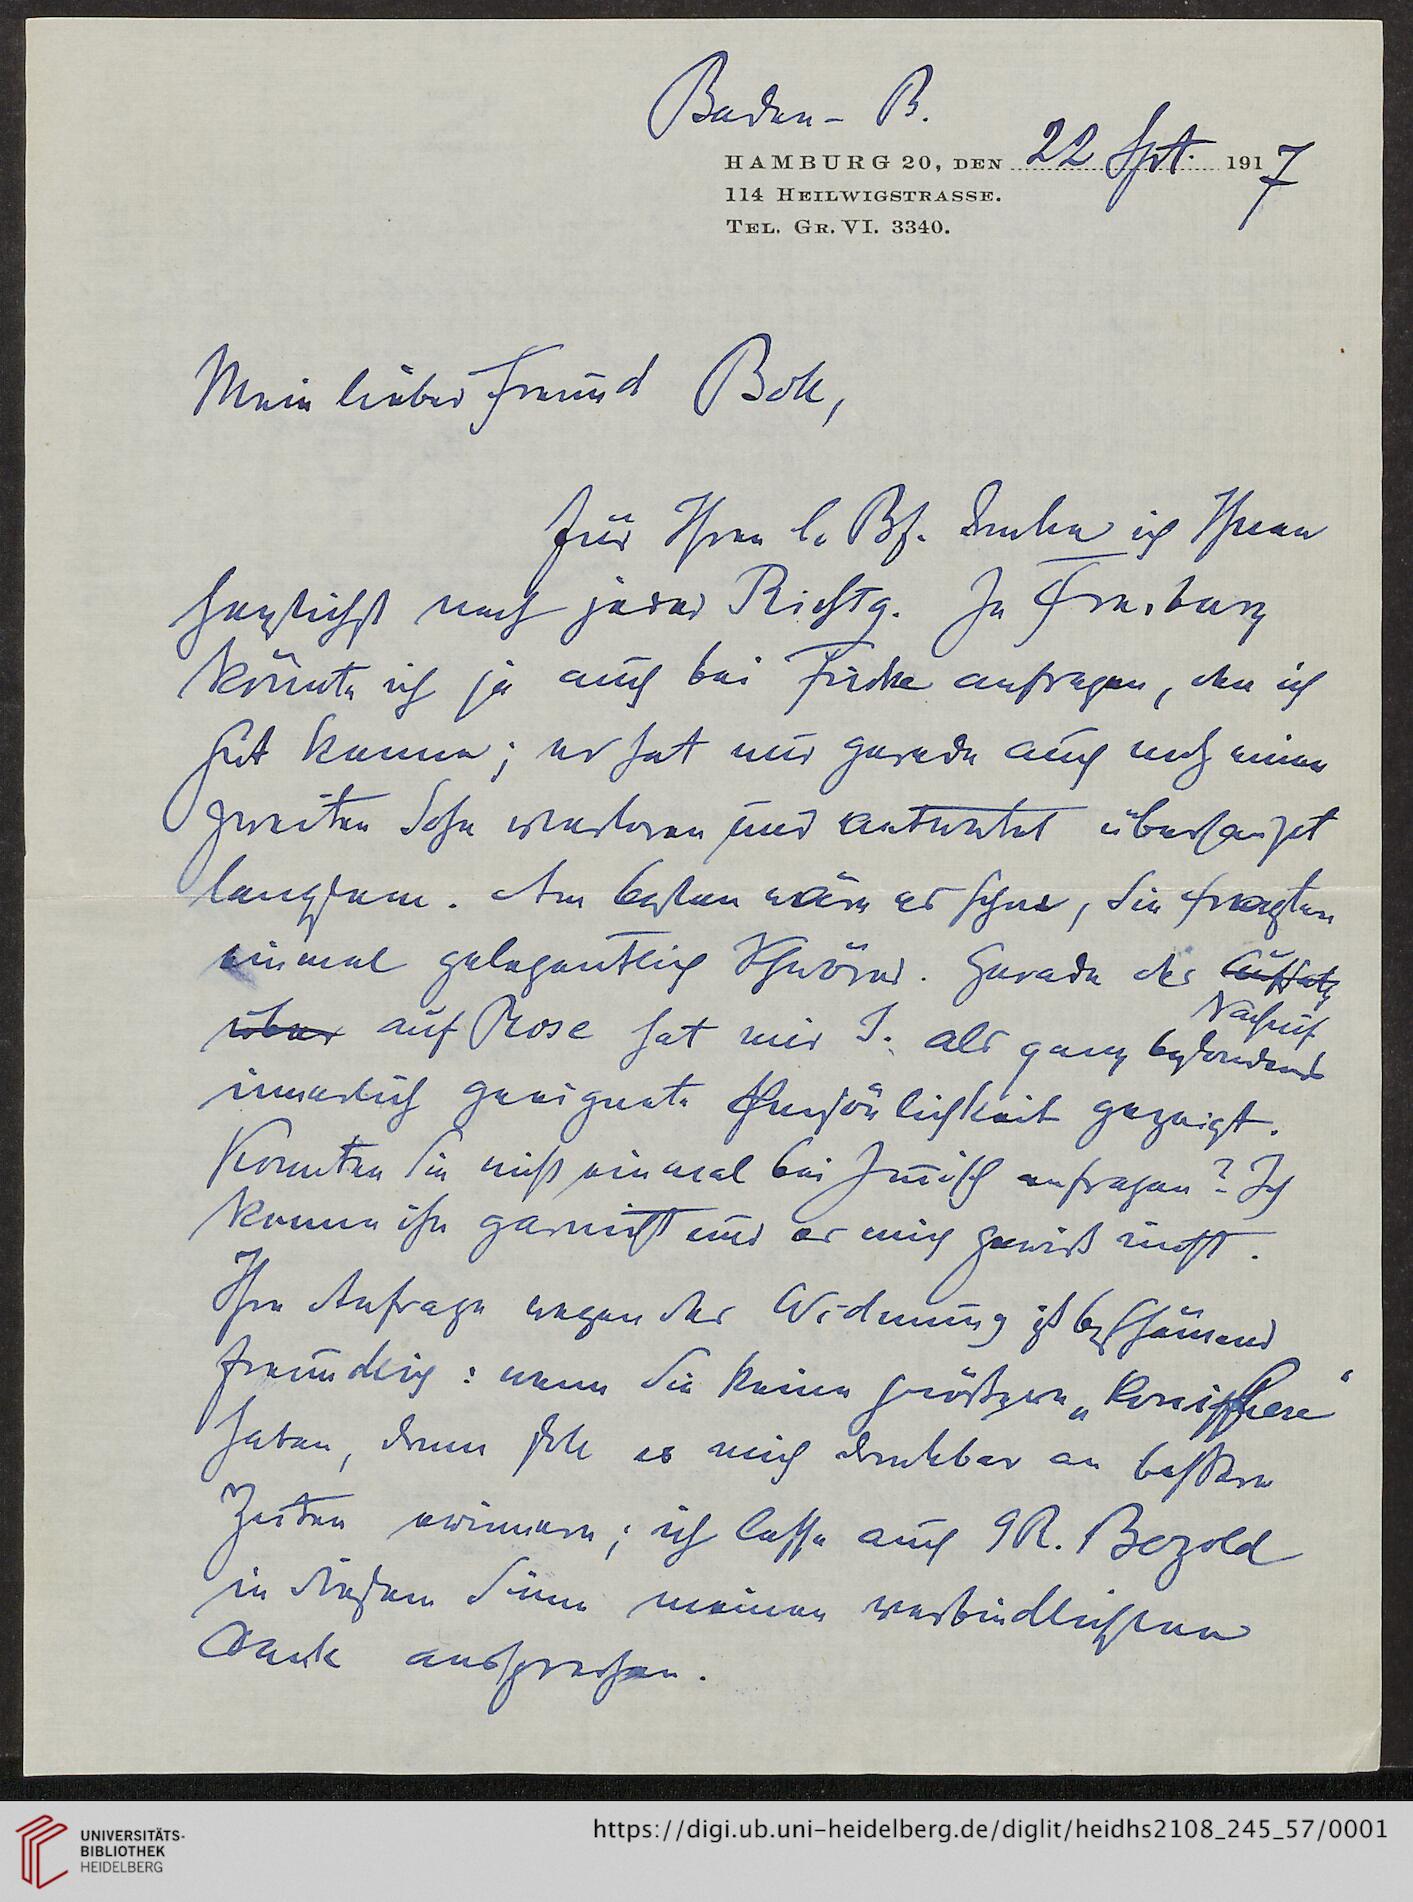 Baden-B.
HAMBURG 20, DEN 22 Spt. 1917
114 HEILWIGSTRASSE.
TEL. GR. VI. 3340.
Mein lieber Freund Boll,
Für Ihren l. Bf. danke ich Ihnen
herzlichst nach jeder Richtg. In Freiburg
könnte ich ja auch bei Fincke anfragen, den ich
gut kenne; er hat nur gerade auch noch einen
zweiten Sohn verloren und antwortet überhaupt
langsam. Am besten wäre es schon, Sie fragten
einmal gelegentlich Schwörer. Gerade der Aufsatz
Nachruf
über auf Rose hat mir J. als ganz besonders
innerlich geeignete Persönlichkeit gezeigt.
Könnten Sie nicht einmal bei anfragen? Ich
kenne ihn garnicht und er mich gewiß nicht.
Ihre Anfrage wegen der Widmung ist beschämend
freundlich: wenn Sie keinen größeren „Koniphere“
haben, dann soll es mich dankbar an bessere
Zeiten erinnern; ich lasse auch GR. Bezold
in diesem Sinne meinen verbindlichsten
Dank aussprechen.
UNIVERSITÄTS-
BIBLIOTHEK
HEIDELBERG
https://digi.ub.uni-heidelberg.de/diglit/heidhs2108_245_57/0001